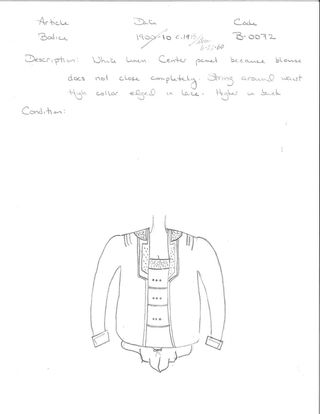 Article Date Code
Bodice 1900-10 c.1915 B-0072
Description: White linen. Center panel because blouse
does not close completely. String around waist
High collar edged in lace. Higher in back
Condition: